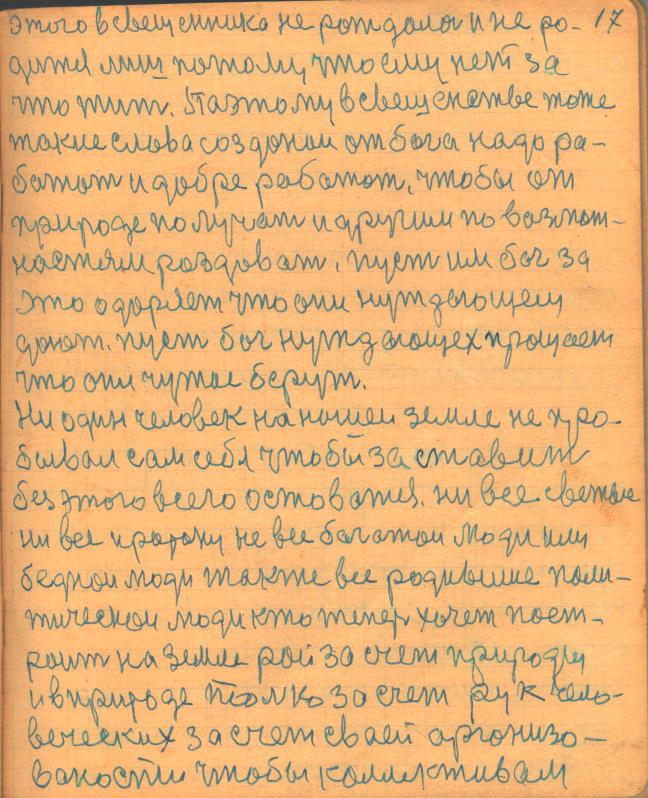 этого в свещенника не рождолои и не ро- 17
дится лиш потому, что ему нет за
что жит. Паэтому в свещенстве тоже
такие слова создонои от бога надо ра-
ботат и добре работат, чтобы от
природе получат и другим по вазмож-
настям роздоват. пуст им бог за
это одоряет что они нуждающем
дают. пуст бог нуждающех прощает
что они чужое берут.
Ни один человек на ношей земле не про-
бывал сам себя чтобы заставит
без этого всего остоватся. ни все светые
ни все не все богатои люди или
беднои люди также все родившие поли-
тическои люди кто тепер хочет пост-
роит на земле рой за счет природы
и в природе толко за счет рук чело-
веческих за счет сваей оргонизо-
ваности чтобы коллективам